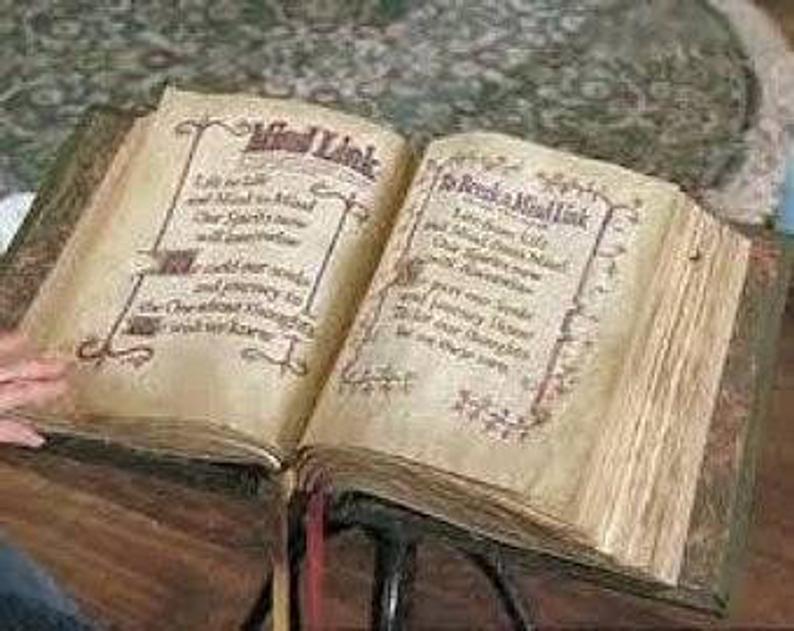 Mind Link
Life to Life
and Mind to Mind
Our Spirits now
will intertwine
We meld our souls
and journey to
the One whose thoughts
We wish we knew
To Break a Mind Link
Life from Life
and Mind from Mind
Our Spirits now
We part our souls
and journey
our thoughts
be our